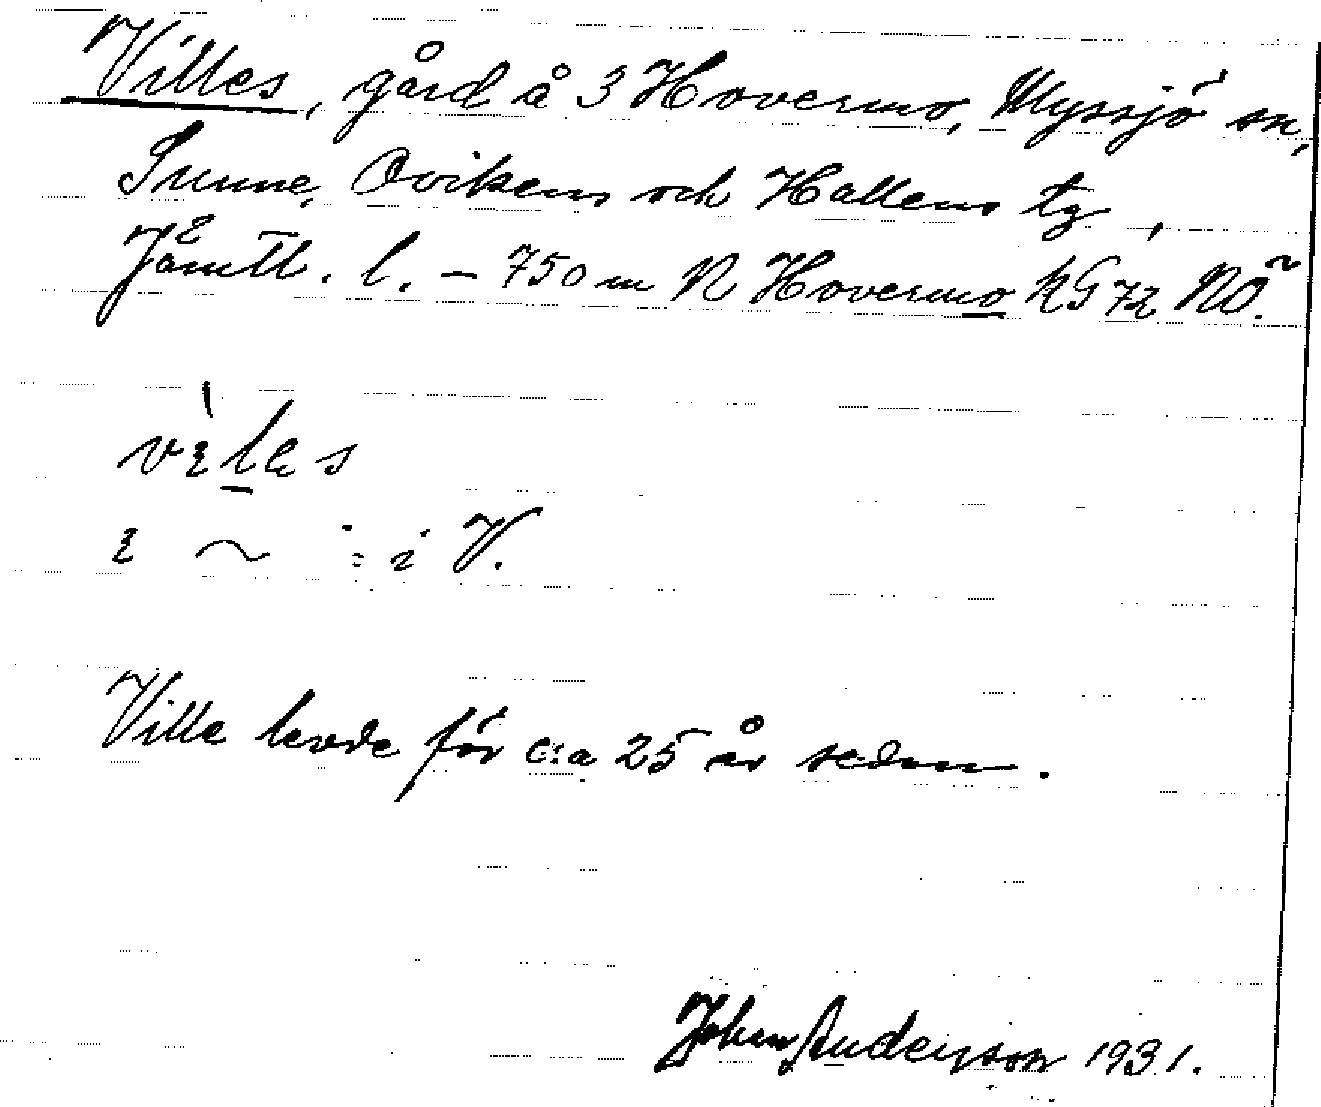 Villes, gård å 3 Hovermo, Myssjö sn,
Sunne, Ovikens och Hallens tg,
Jämtl. l. – 750 m N Hovermo kG 72 NÖ.
i V.
Ville levde för c:a 25 år sedan.
Johan Andersson 1931.